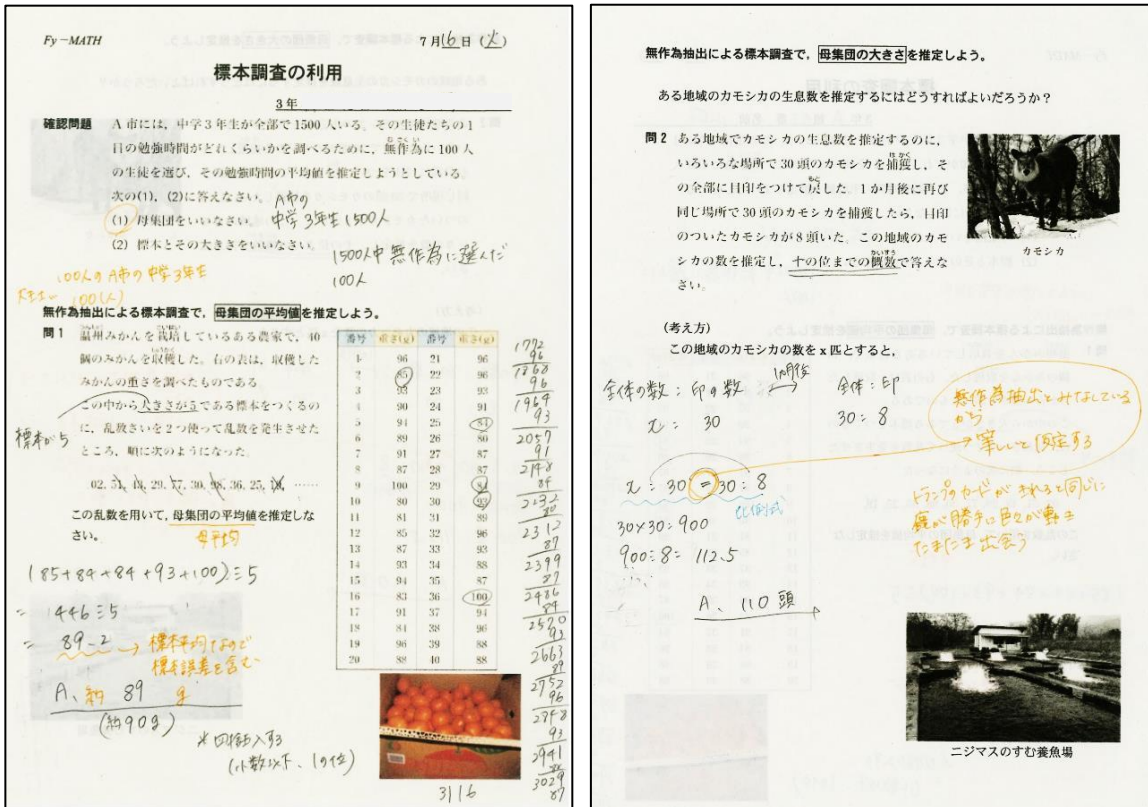 Fy-MATH
7月16日(火)
標本調査の利用
3年
確認問題 A市には，中学3年生が全部で1500人いる。その生徒たちの1
日の勉強時間がどれくらいかを調べるために，無作為に100人
の生徒を選び，その勉強時間の平均値を推定しようとしている。
次の(1)，(2)に答えなさい。
A市の
(1) 母集団をいいなさい。
中学3年生1500人
(2) 標本とその大きさをいいなさい。
1500人中無作為に選んだ
100人
100人のA市の中学3年生
大きさ… 100(人)
無作為抽出による標本調査で，母集団の平均値を推定しよう。
問1 温州みかんを栽培しているある農家で，40
個のみかんを収穫した。右の表は，収穫した
みかんの重さを調べたものである
この中から大きさが5である標本をつくるの
に，乱数さいを2つ使って乱数を発生させた
ところ，順に次のようになった。
標本が5
02, 51, 13, 29, 77, 30, 98, 36, 25, 18, ……
この乱数を用いて，母集団の平均値を推定しな
さい。
母平均
(85+84+84+93+100)÷5
= 446÷5
= 89.2
→ 標本平均なので
標本誤差を含む
A、約 89 g
(約90g)
※四捨五入する
(小数以下、1の位)
番号 重さ(g) 番号 重さ(g)
1 96 21 96
2 85 22 96
3 93 23 93
4 90 24 91
5 94 25 84
6 89 26 80
7 91 27 87
8 87 28 87
9 100 29 84
10 80 30 93
11 81 31 89
12 85 32 96
13 87 33 93
14 93 34 88
15 94 35 87
16 83 36 100
17 91 37 94
18 81 38 96
19 96 39 88
20 88 40 88
1772
96
1868
96
1964
93
2057
91
2148
84
2232
80
2312
87
2399
87
2486
84
2570
93
2663
89
2752
96
2848
93
2941
88
3029
87
3116
無作為抽出による標本調査で，母集団の大きさを推定しよう。
ある地域のカモシカの生息数を推定するにはどうすればよいだろうか？
問2 ある地域でカモシカの生息数を推定するのに，
いろいろな場所で30頭のカモシカを捕獲し，そ
の全部に目印をつけて戻した。1か月後に再び
同じ場所で30頭のカモシカを捕獲したら，目印
のついたカモシカが8頭いた。この地域のカモ
シカの数を推定し，十の位までの概数で答えな
さい。
カモシカ
(考え方)
この地域のカモシカの数をx匹とすると，
全体の数：印の数
1か月後
全体：印
x : 30
30 : 8
無作為抽出とみなしている
から
→ 等しいと仮定する
x : 30 = 30 : 8
比例式
30×30=900
900÷8= 112.5
A、110頭
トランプのカードがまざると同じに
鹿が勝手に色々が動き
たまたま出会う
ニジマスのすむ養魚場